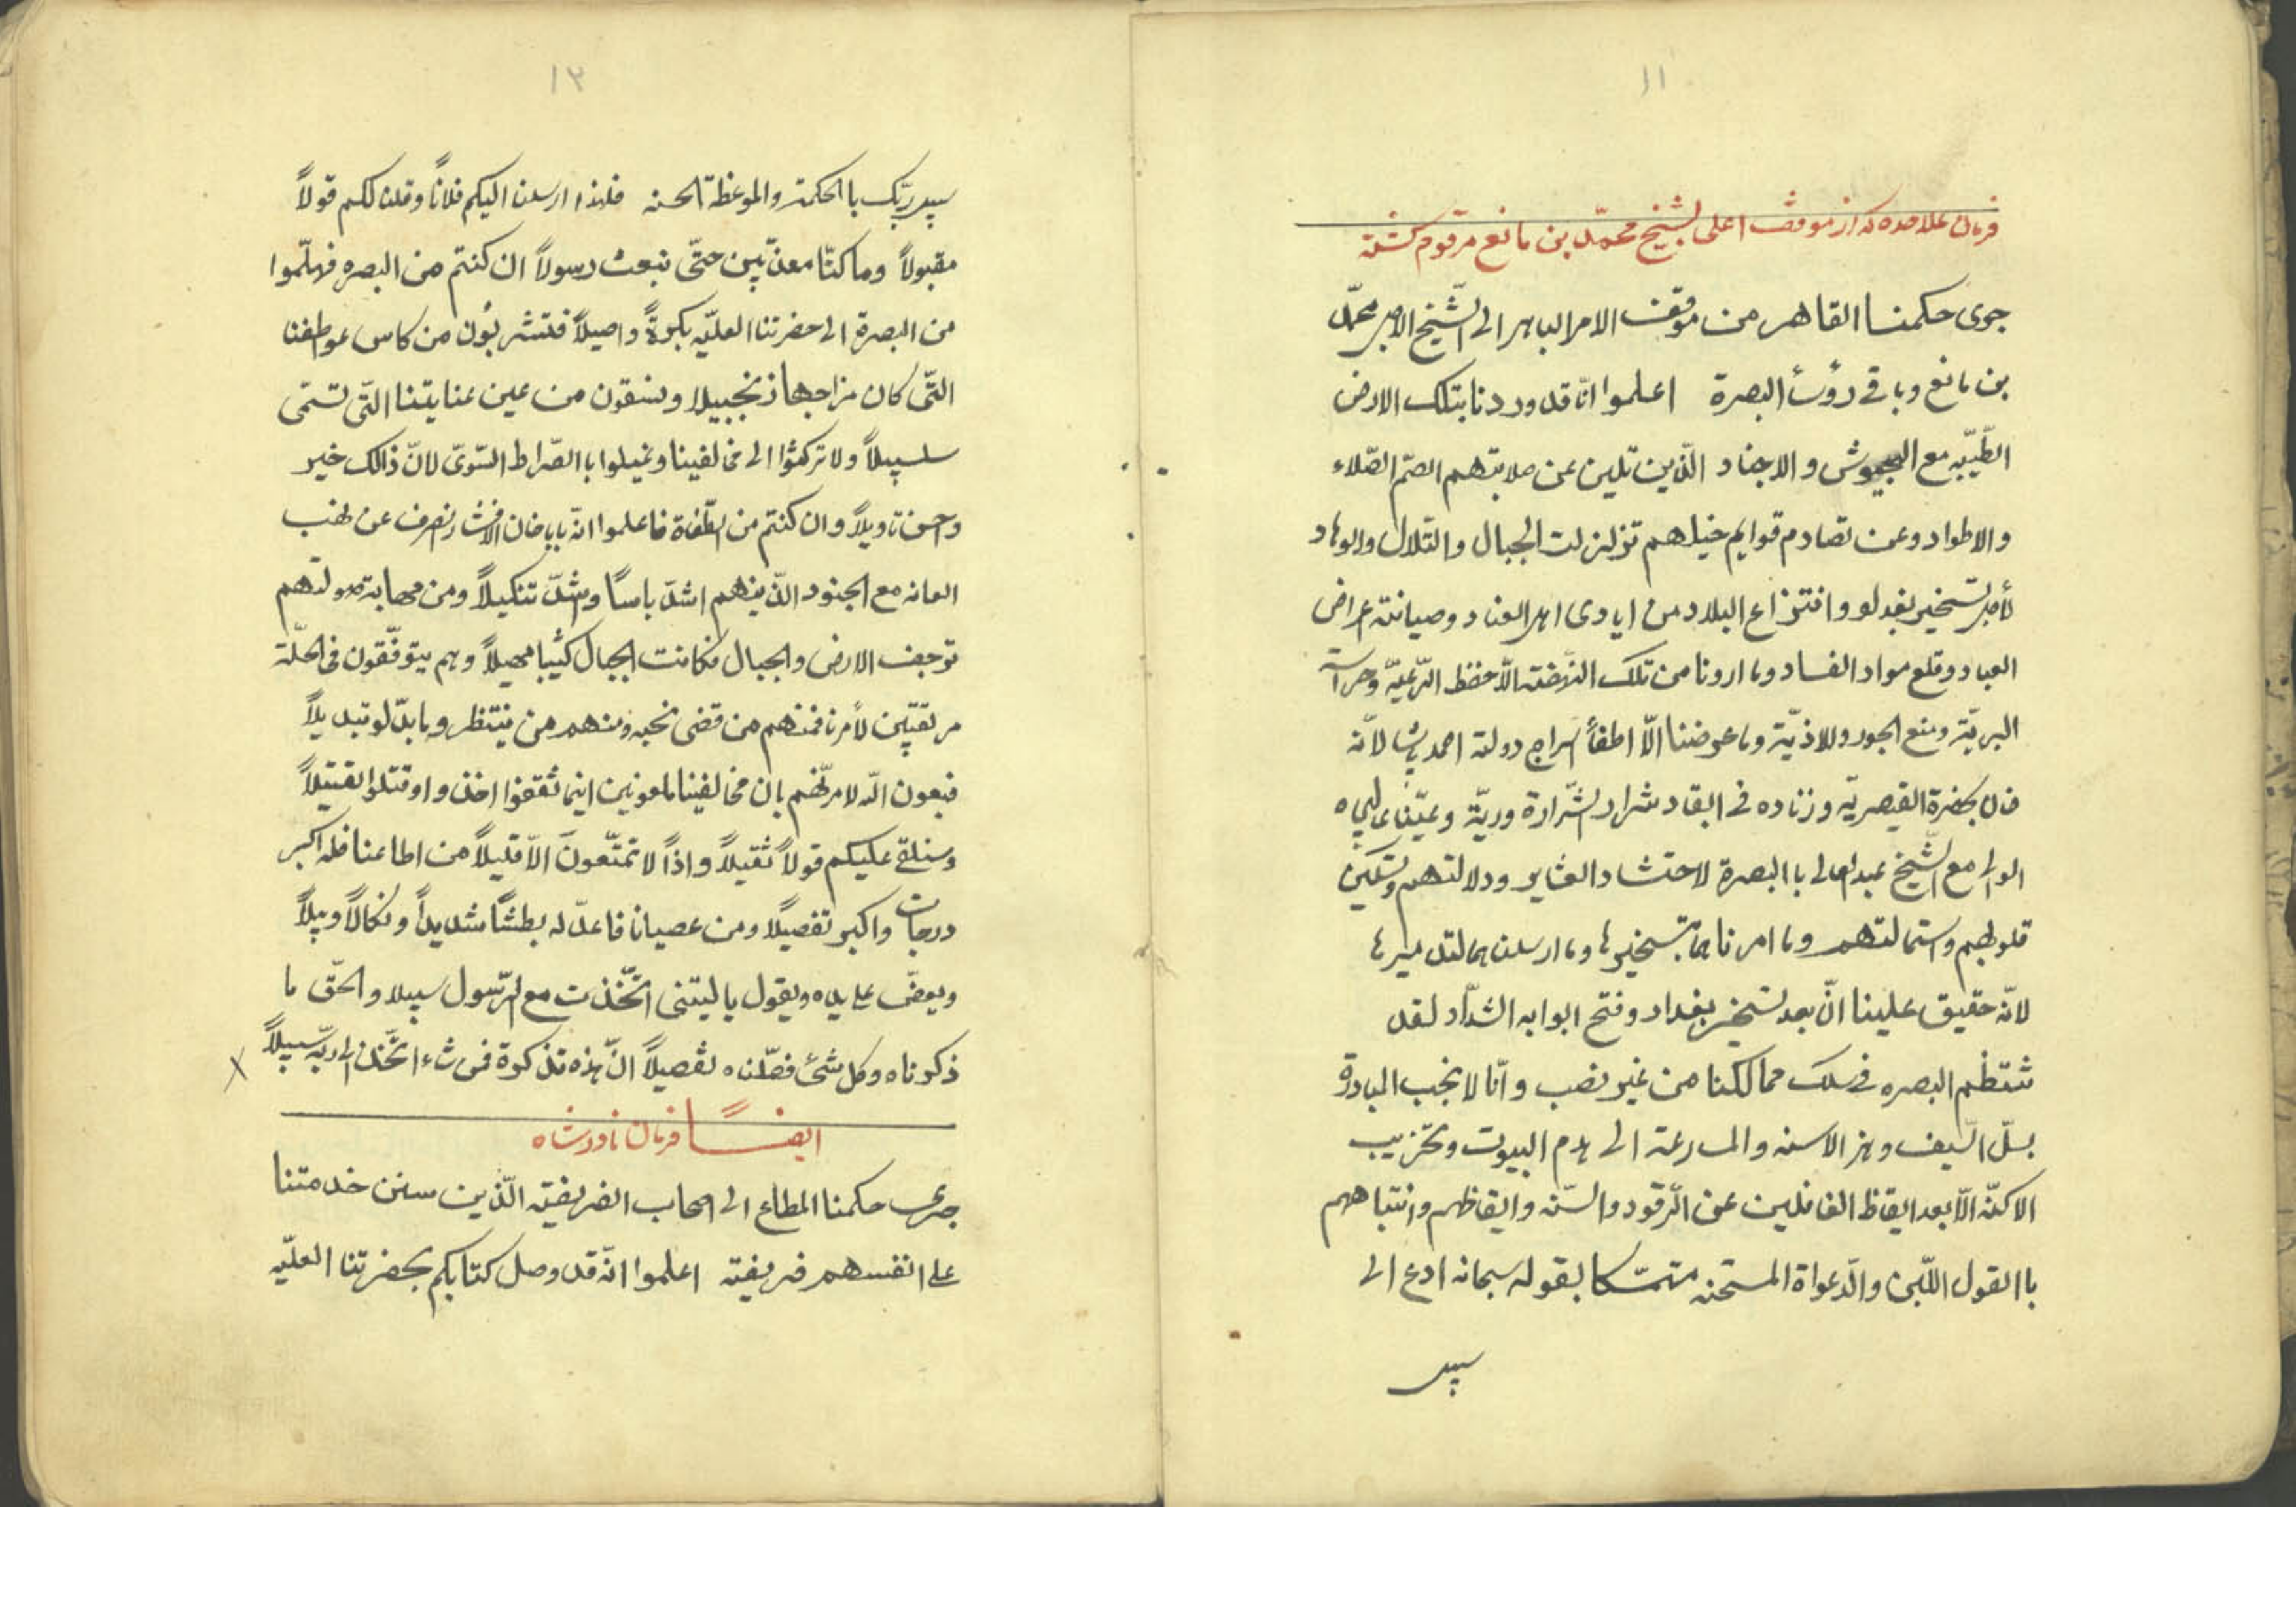 ١١
فرمان علاحده که از موقف اعلی بشیخ محمّد بن مانع مرقوم کشته
جری حکمنا القاهر من موقف الامر الباهر الی الشّیخ الامیر محمّد
بن مانع و باقی رؤسأ البصرة اعلموا انّا قد وردنا بتلک الارض
الطّیّبه مع الجیوش و الاجناد الّذین تلین عن صلابتهم الصمّ الصّلاء
و الاطواد و عن تصادم قوایم خیلهم تزلزلت الجبال و التلال و الوهاد
لأجل تسخیر بغداد و انتزاع البلاد من ایادی اهل العناد و صیانته اعراض
العباد و قلع مواد الفساد و ما اردنا من تلک النّهضته الّا حفظ الرّعیّه و حراسة
البریّة و منع الجور و الاذیّة و ما عرضنا الّا اطفأ سراج دولته احمد پاشا لانّه
خان بحضرة القیصریّه و زناده فی ایقاد شرار الشّرارة وریّة و عیّنا عالیجاه
الوالی مع الشّیخ عبدالعالی باالبصرة لاحتشاد العشایر و دلالتهم و تسکین
قلوبهم و استمالتهم و ما امرناهما بتسخیرها و ما ارسلناهما لتدمیرها
لانّه حقیق علینا انّ بعد تسخیر بغداد و فتح ابوابه الشدّاد لقد
شتظم البصره فی سلک ممالکنا من غیر نصب و انّا لا نجب المبادرة
بسلّ السّیف و هز الاسنه و المسارعة الی هدم البیوت و تخریب
الاکنّه الّا بعد ایقاظ الغافلین عن الرّقود و السّنه و ایقاظهم و انتباههم
باالقول اللیّن و الدّعواة المستحنه متمسّکا بقوله سبحانه ادع الی
سبیل
١٣
سبیل ربّک باالحکمته و الموعظة الحسنه فلهذا ارسلنا الیکم فلاناً و قلنا لکم قولاً
مقبولاً و ما کنّا معذّبین حتّی نبعث رسولاً ان کنتم من البصره فهلمّوا
من البصرة الی حضرتنا العلیّه بکرةً و اصیلاً فتشربُون من کاس عواطفنا
التّی کان مزاجها زنجبیلا و تسقون من عین عنایتنا التّی تسمّی
سلسبیلاً و لا ترکنوا الی مخالفینا و تمیلوا باالصّراط السّویّ لانّ ذالک خیر
و احسن تاویلاً و ان کنتم من الطّغاة فاعلموا انّه باباخان الافشار انصرف عن نهب
العانه مع الجنود الّذینهم اشدّ باساً و اشدّ تنکیلاً و من مهابة صولتهم
ترجف الارض و الجبال فکانت الجبال کثیبا مهیلاً و هم یتوفّقون فی الحلّة
مرتقبین لأمرنا فمنهم من قضی نحبه و منهم من ینتظر و ما بدّلو تبدیلاً
فبعون اللّه لامرنّهم بان مخالفینا ملعونین اینما ثقفوا اخذوا و قتلوا تقتیلاً
و سنلقی علیکم قولاً ثقیلاً و اذاً لا تمتّعونَ الّا قلیلاً من اطاعنا فله اکبر
درجات و اکبر تفضیلا و من عصیانا فاعدّ له بطشاً شدیداً و نکالاً وبیلاً
و یعضّ علی یداه و یقول یا لیتنی اتّخذت مع الرّسول سبیلا و الحقّ ما
ذکرناه و کل شیء فصّلناه تفصیلاً انّ هذه تذکرة فمن شاء اتّخذ الی ربّه سبیلاً
ایضاً فرمان نادرشاه
جری حکمنا المطاع الی اصحاب الضریفیته الّذین سنن خدمتنا
علی انفسهم فریفیته اعلموا انّه قد وصل کتابکم بحضرتنا العلیّه